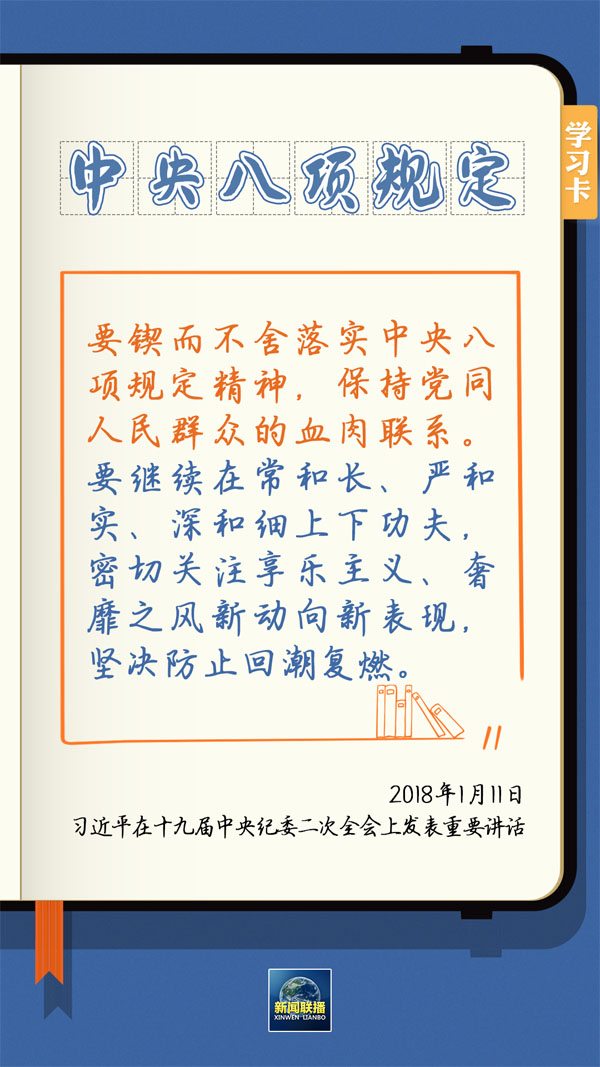 学习卡
中央八项规定
要锲而不舍落实中央八
项规定精神，保持党同
人民群众的血肉联系。
要继续在常和长、严和
实、深和细上下功夫，
密切关注享乐主义、奢
靡之风新动向新表现，
坚决防止回潮复燃。
2018年1月11日
习近平在十九届中央纪委二次全会上发表重要讲话
新闻联播
XINWEN LIANBO